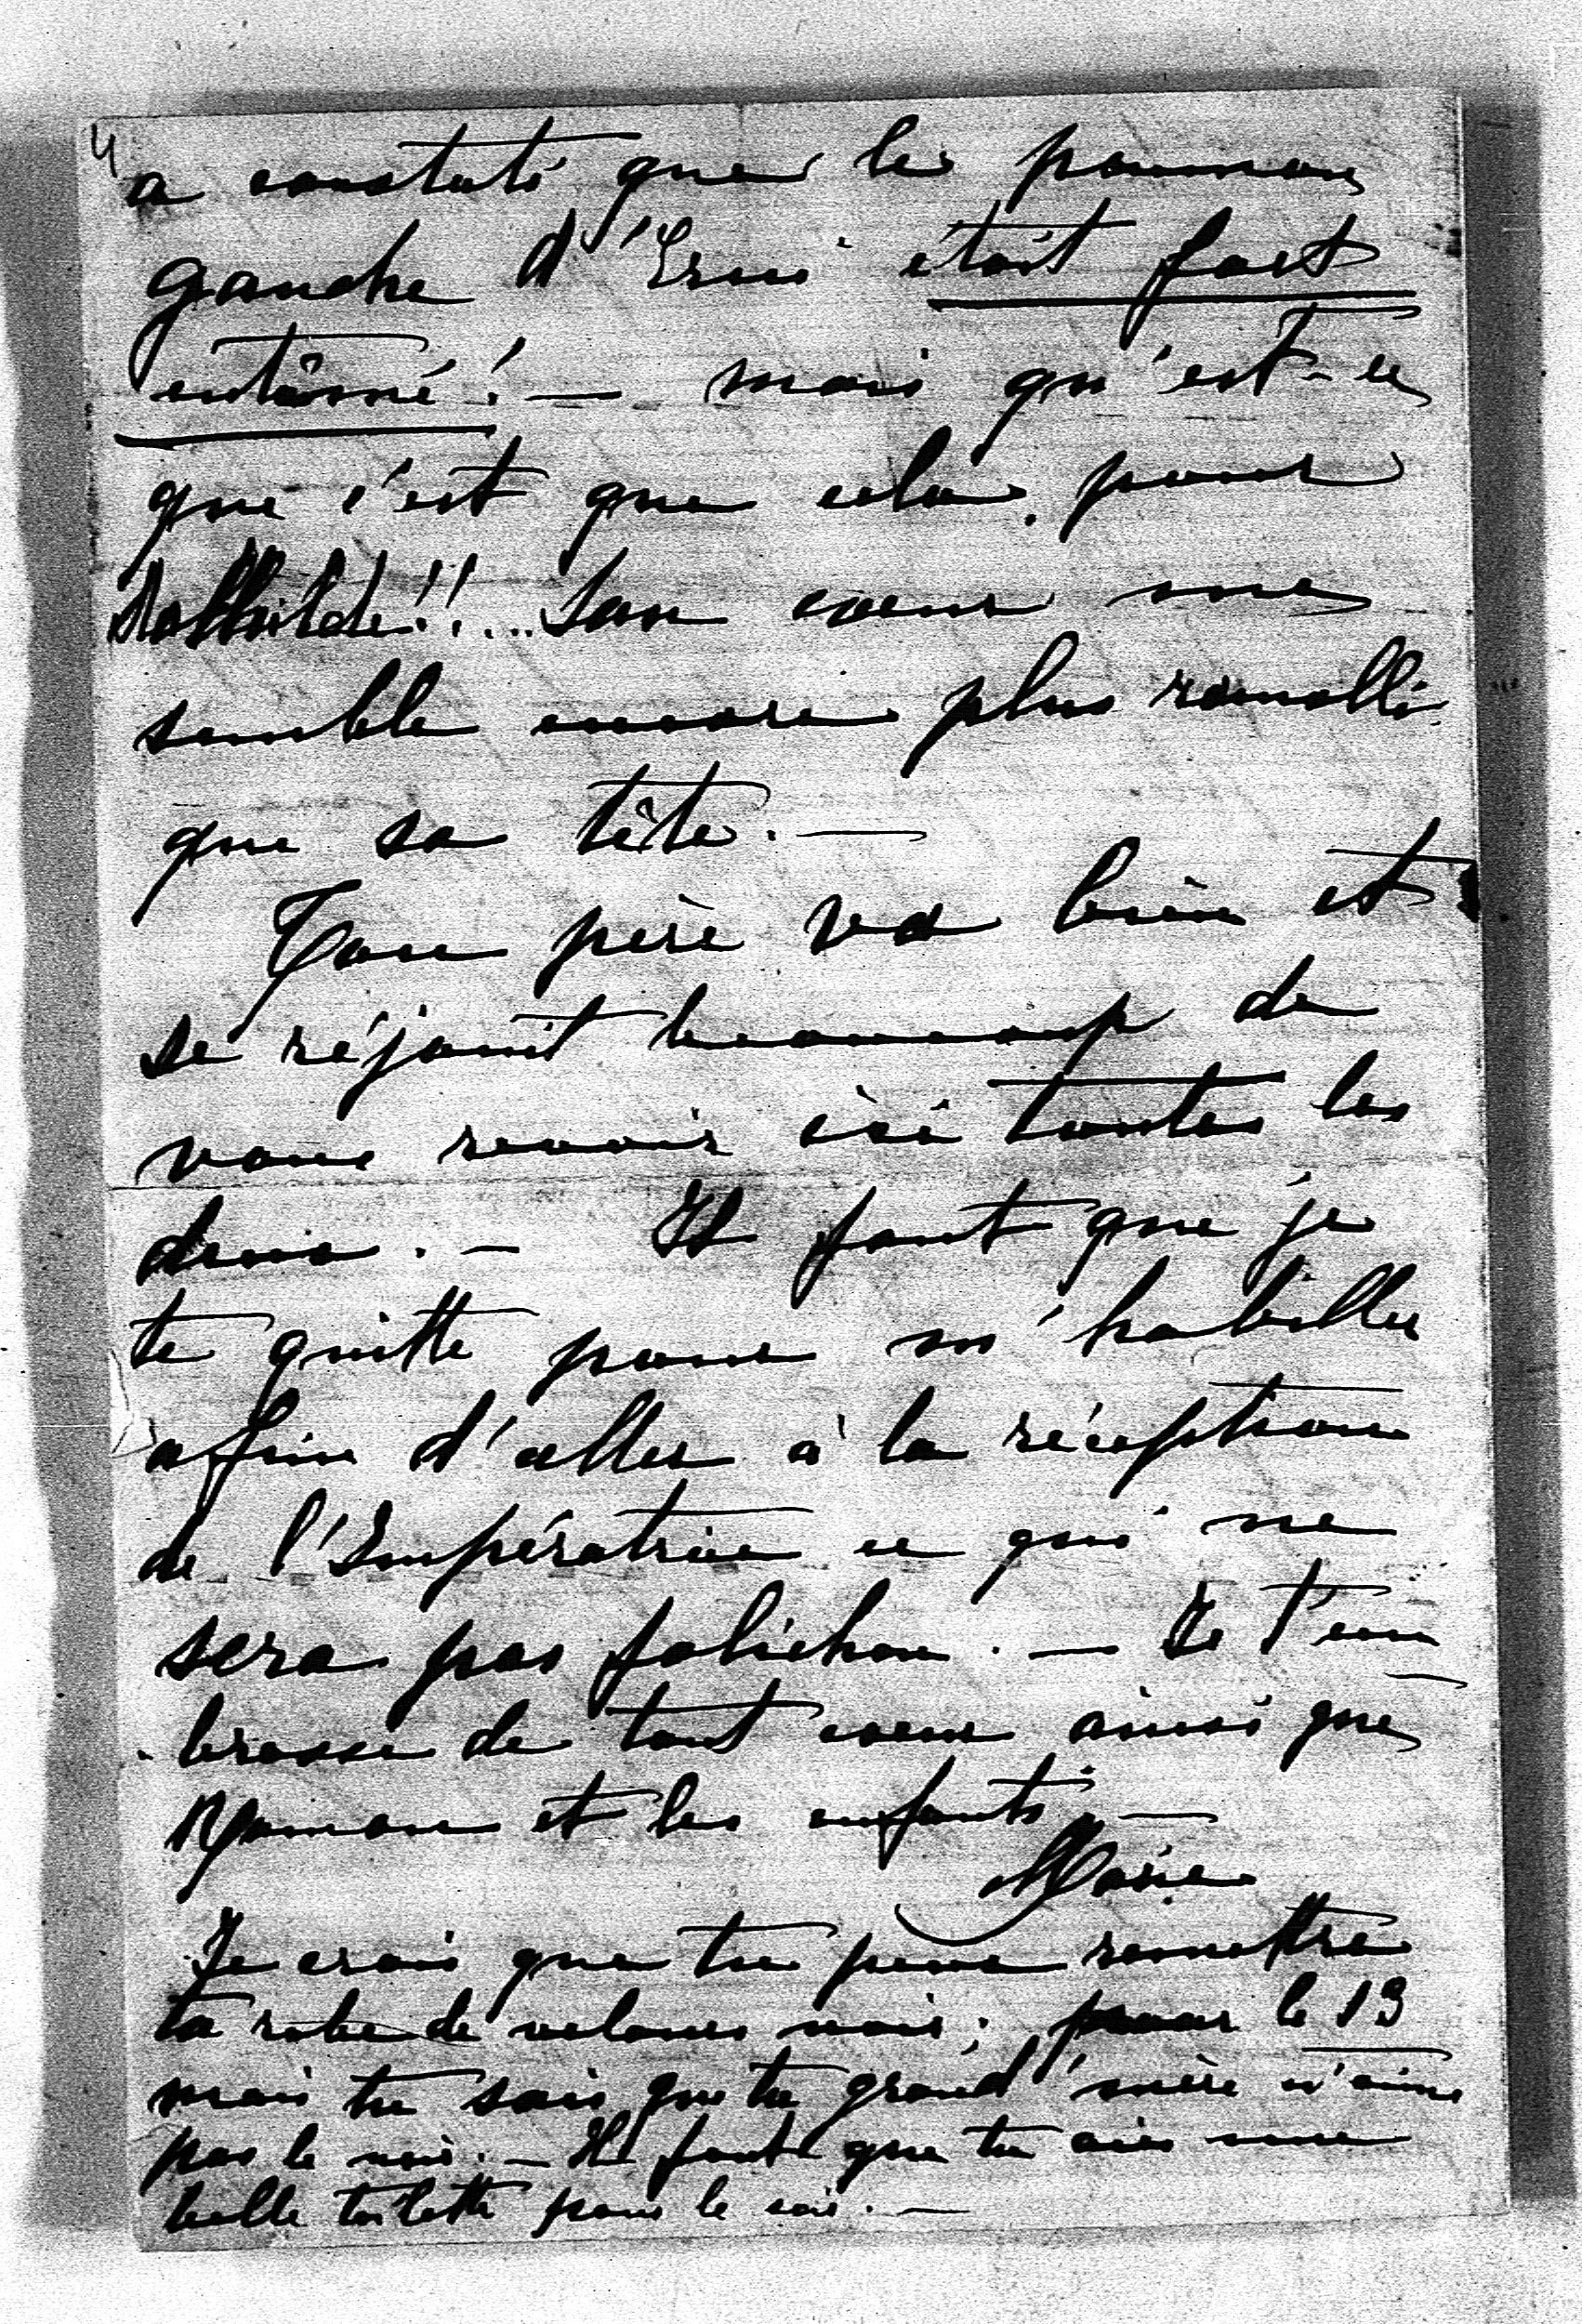 4
a constaté que le poumon
gauche d'Erni était fort
entâmé! — mais qu'est-ce
que c'est que cela pour
Mathilde!!... Son cœur me
semble encore plus ramolli
que sa tête. —
Ton père va bien et
se réjouit beaucoup de
vous revoir ici toutes les
deux. — Il faut que je
te quitte pour m'habiller
afin d'aller à la réception
de l'Impératrice ce qui ne
sera pas folichon. — Je t'em
brasse de tout cœur ainsi que
Maman et les enfants. —
Marie
Je crois que tu peux remettre
ta robe de velours noir; pour le 13
mais tu sais que ta grand'mère n'aime
pas le noir. — Il faut que tu aies une
belle toilette pour le soir. —